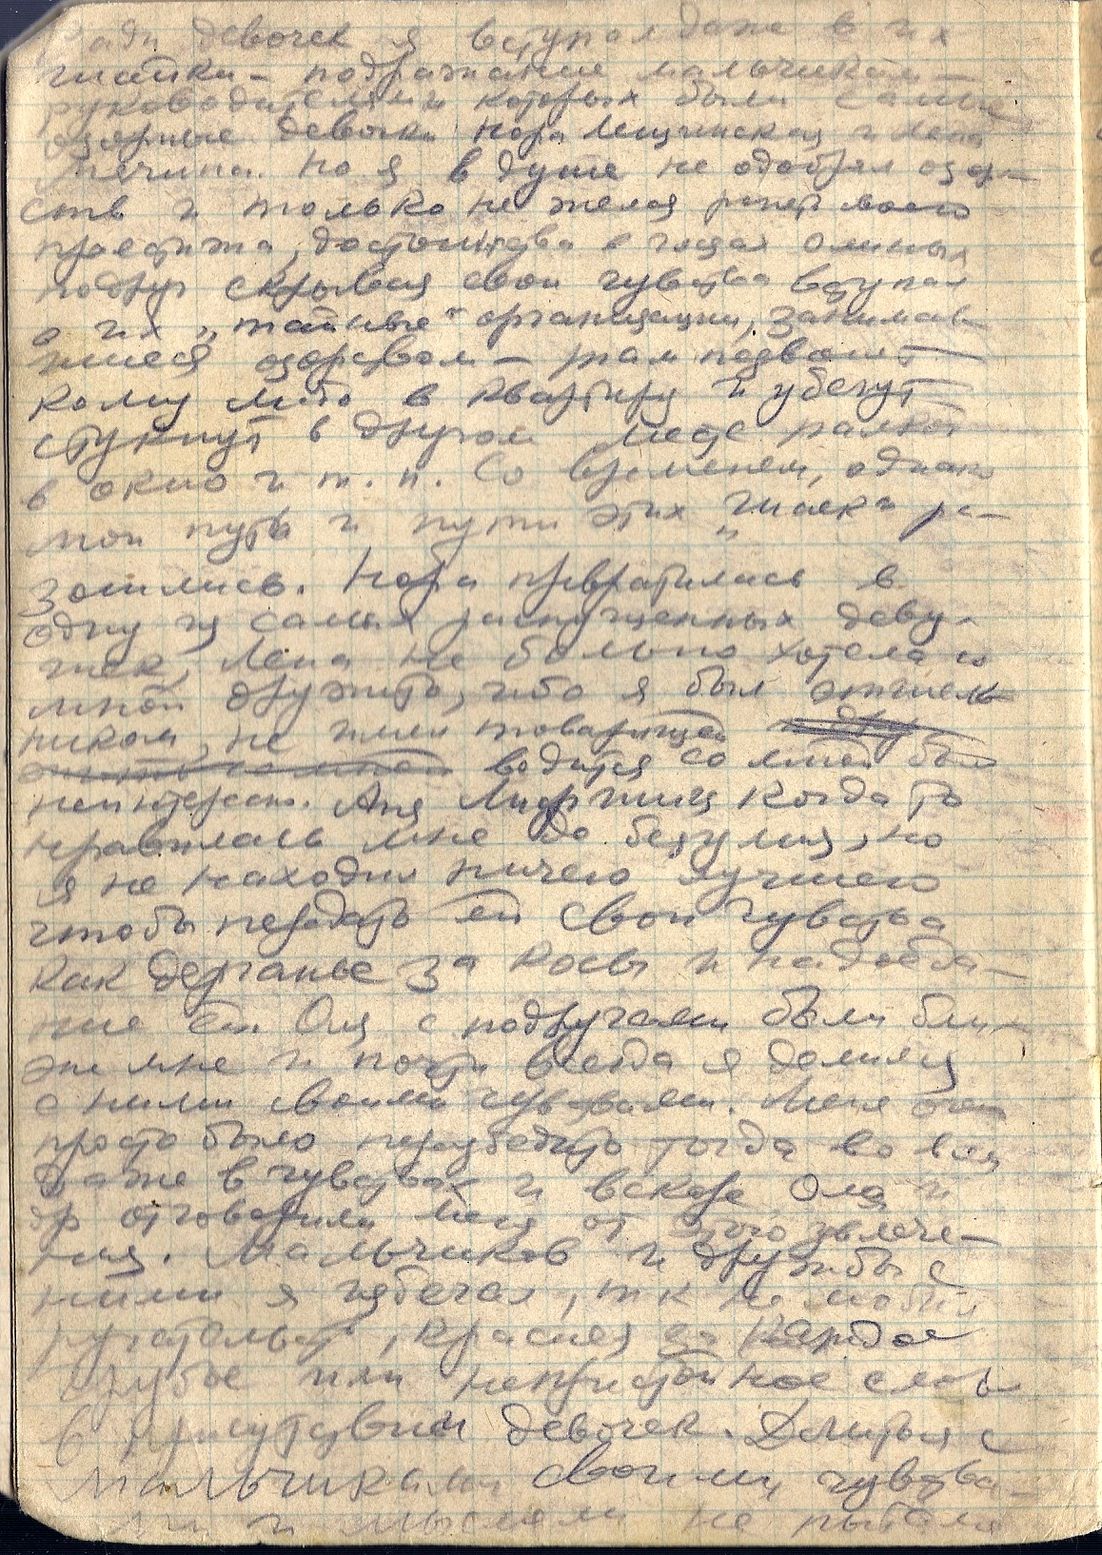 Ради девочек я вступал даже в их
шайки – подражание мальчикам –
руководителями которых были самые
озорные девочки Нора Лещинская и Лена
но я в душе не одобрял озор-
ств и только не желая ронять своего
престижа, достоинства в глазах Олиных
подруг скрывая свои чувства вступал
в их „тайные" организации, занимав-
шиеся озорством – там позвонят
кому либо в квартиру и убегут
стукнут в другом месте палкой
в окно и т. п. Со временем, однако
мои пути и пути этих „шаек" ра-
зошлись. Нора превратилась в
одну из самых распущенных деву-
шек, Лена не больно хотела со
мной дружить, ибо я был отшель-
ником, не имел товарищей
водиться со мной было
неинтересно. Аня когда то
нравилась мне до безумия, но
я не находил ничего лучшего
чтобы передать ей свои чувства
как дерганье за косы и надоеда-
ние ей. Оля с подругами были бли-
же мне и почти всегда я делился
с ними своими чувствами. Меня очень
просто было переубедить тогда во всем
даже в чувствах и вскоре Оля и
др отговорили меня от этого увлече-
ния. Мальчиков и дружбы с
ними я избегал, т к не любил
ругательств, краснел за каждое
грубое или непристойное слово
в присутствии девочек. Делиться с
мальчиками своими чувства-
ми и мыслями не пытался